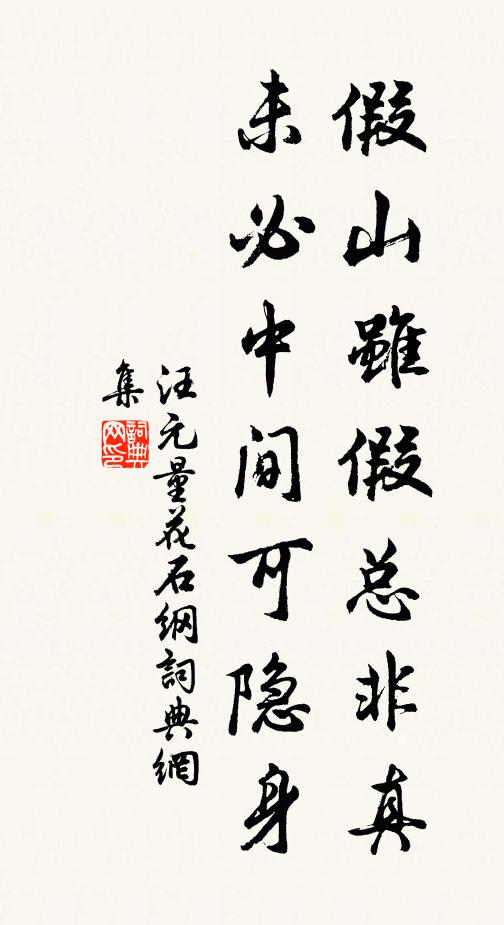 假山雖假总非真
未必中间可隐身
汪元量花石纲詞典網
集
詞典网印